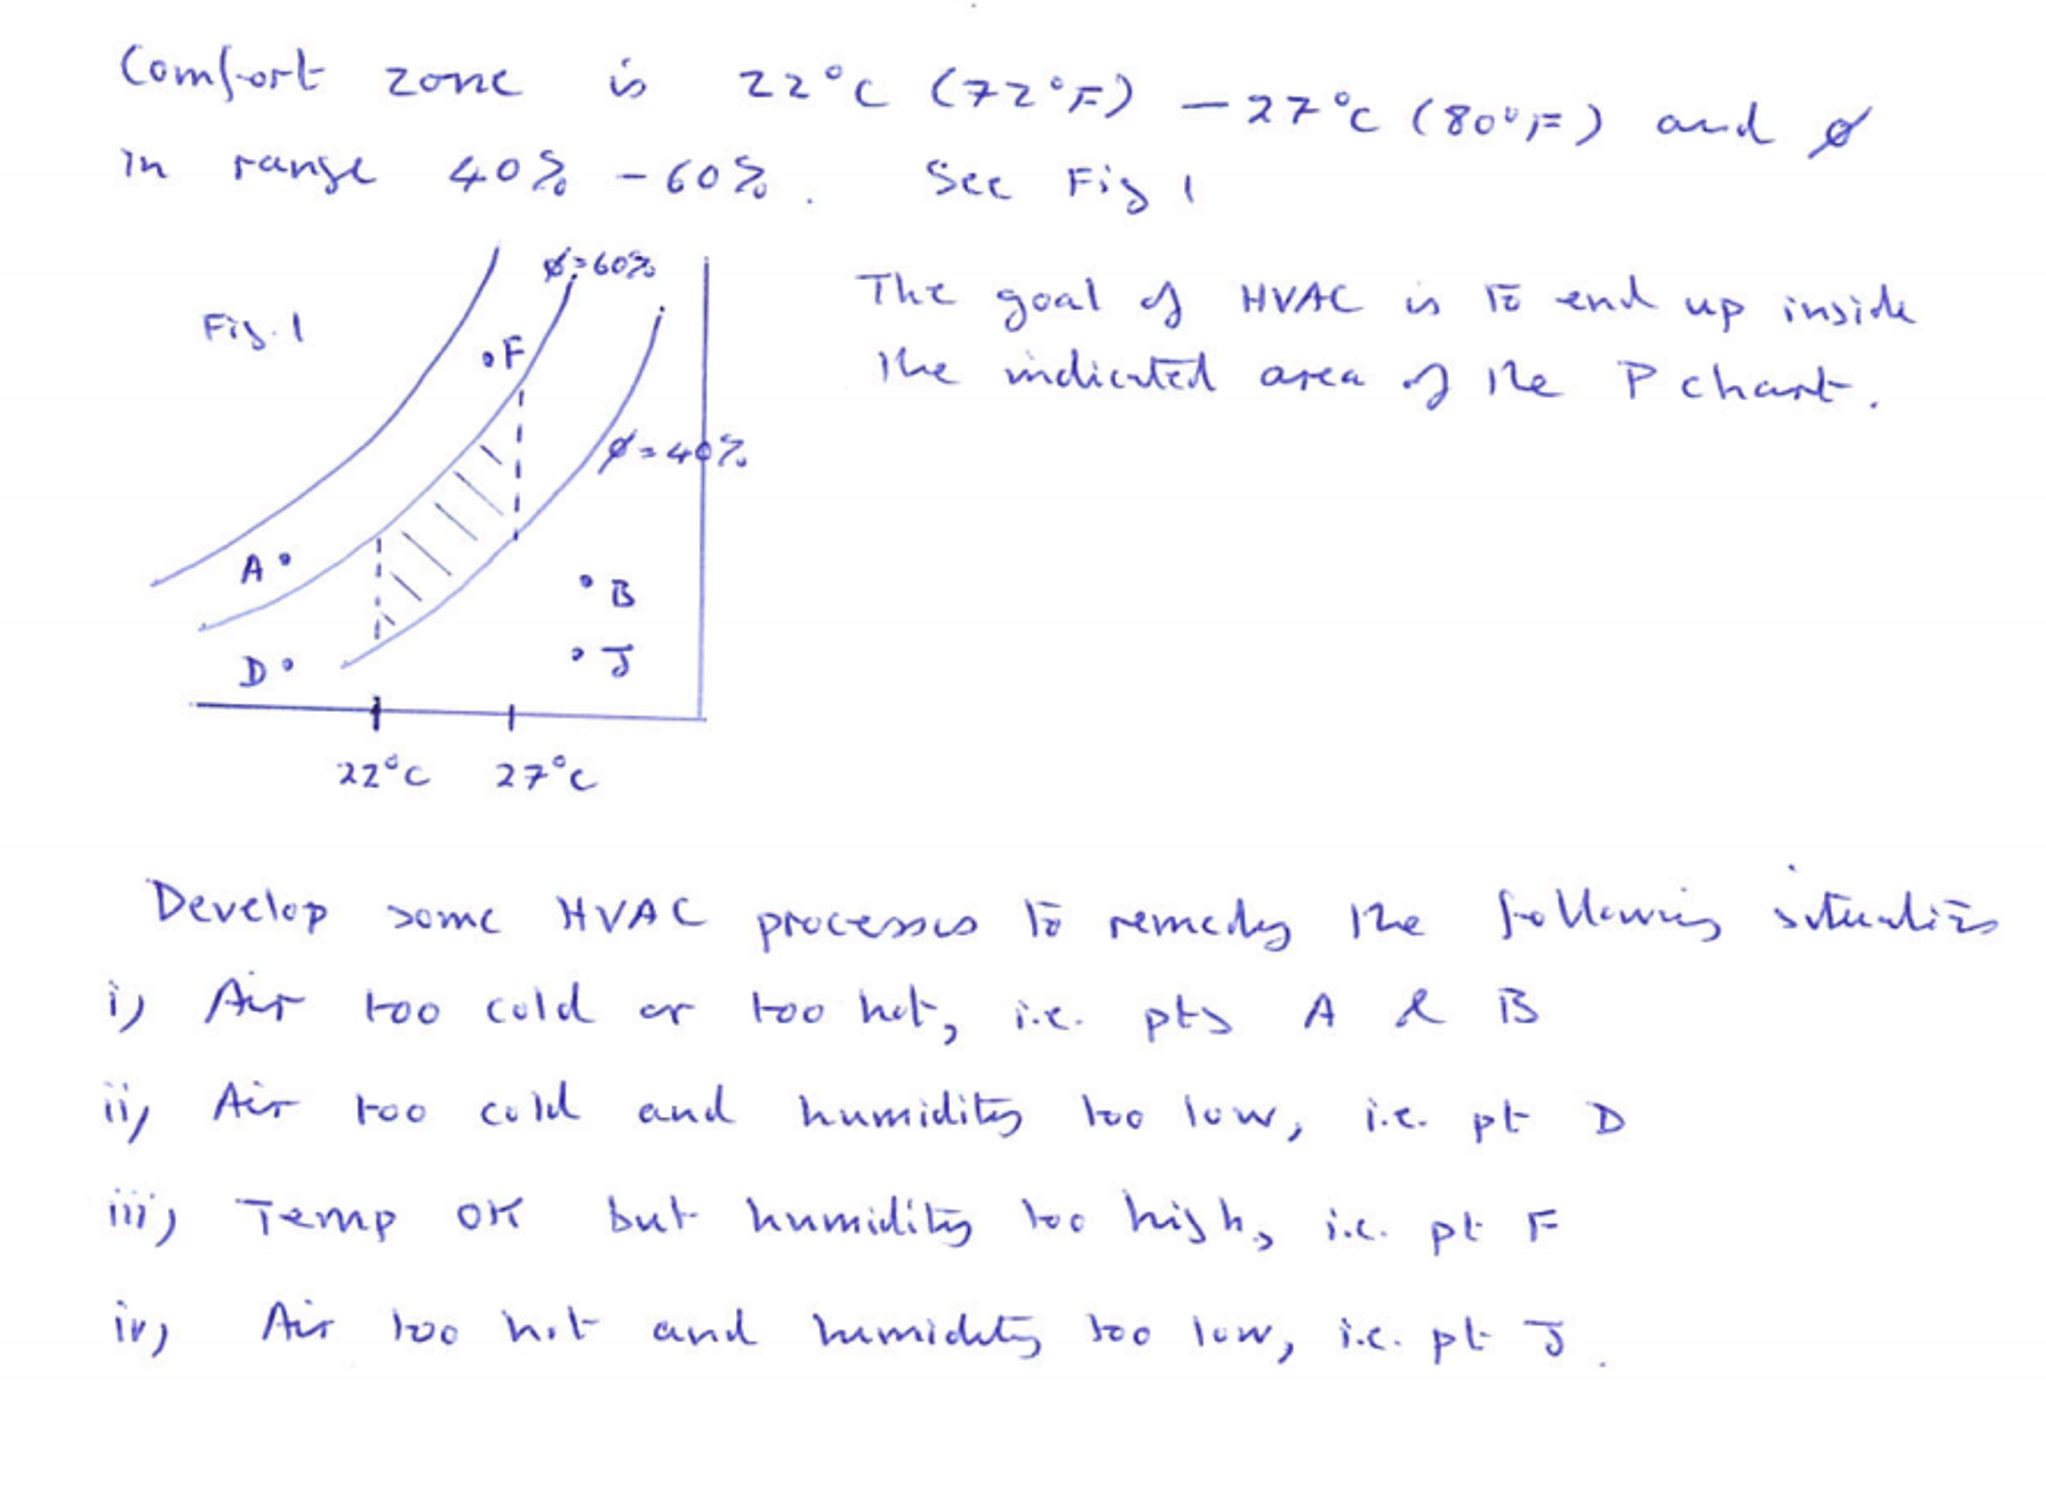 Comfort zone is 22°C (72°F) – 27°C (80°F) and ø
in range 40% – 60%. See Fig 1
ø = 60%
Fig. 1
F
The goal of HVAC is to end up inside
the indicated area of the P chart.
ø = 40%
A
B
J
D
22°C 27°C
Develop some HVAC processes to remedy the following situations
i) Air too cold or too hot, i.e. pts A & B
ii) Air too cold and humidity too low, i.e. pt D
iii) Temp OK but humidity too high, i.e. pt F
iv) Air too hot and humidity too low, i.e. pt J.